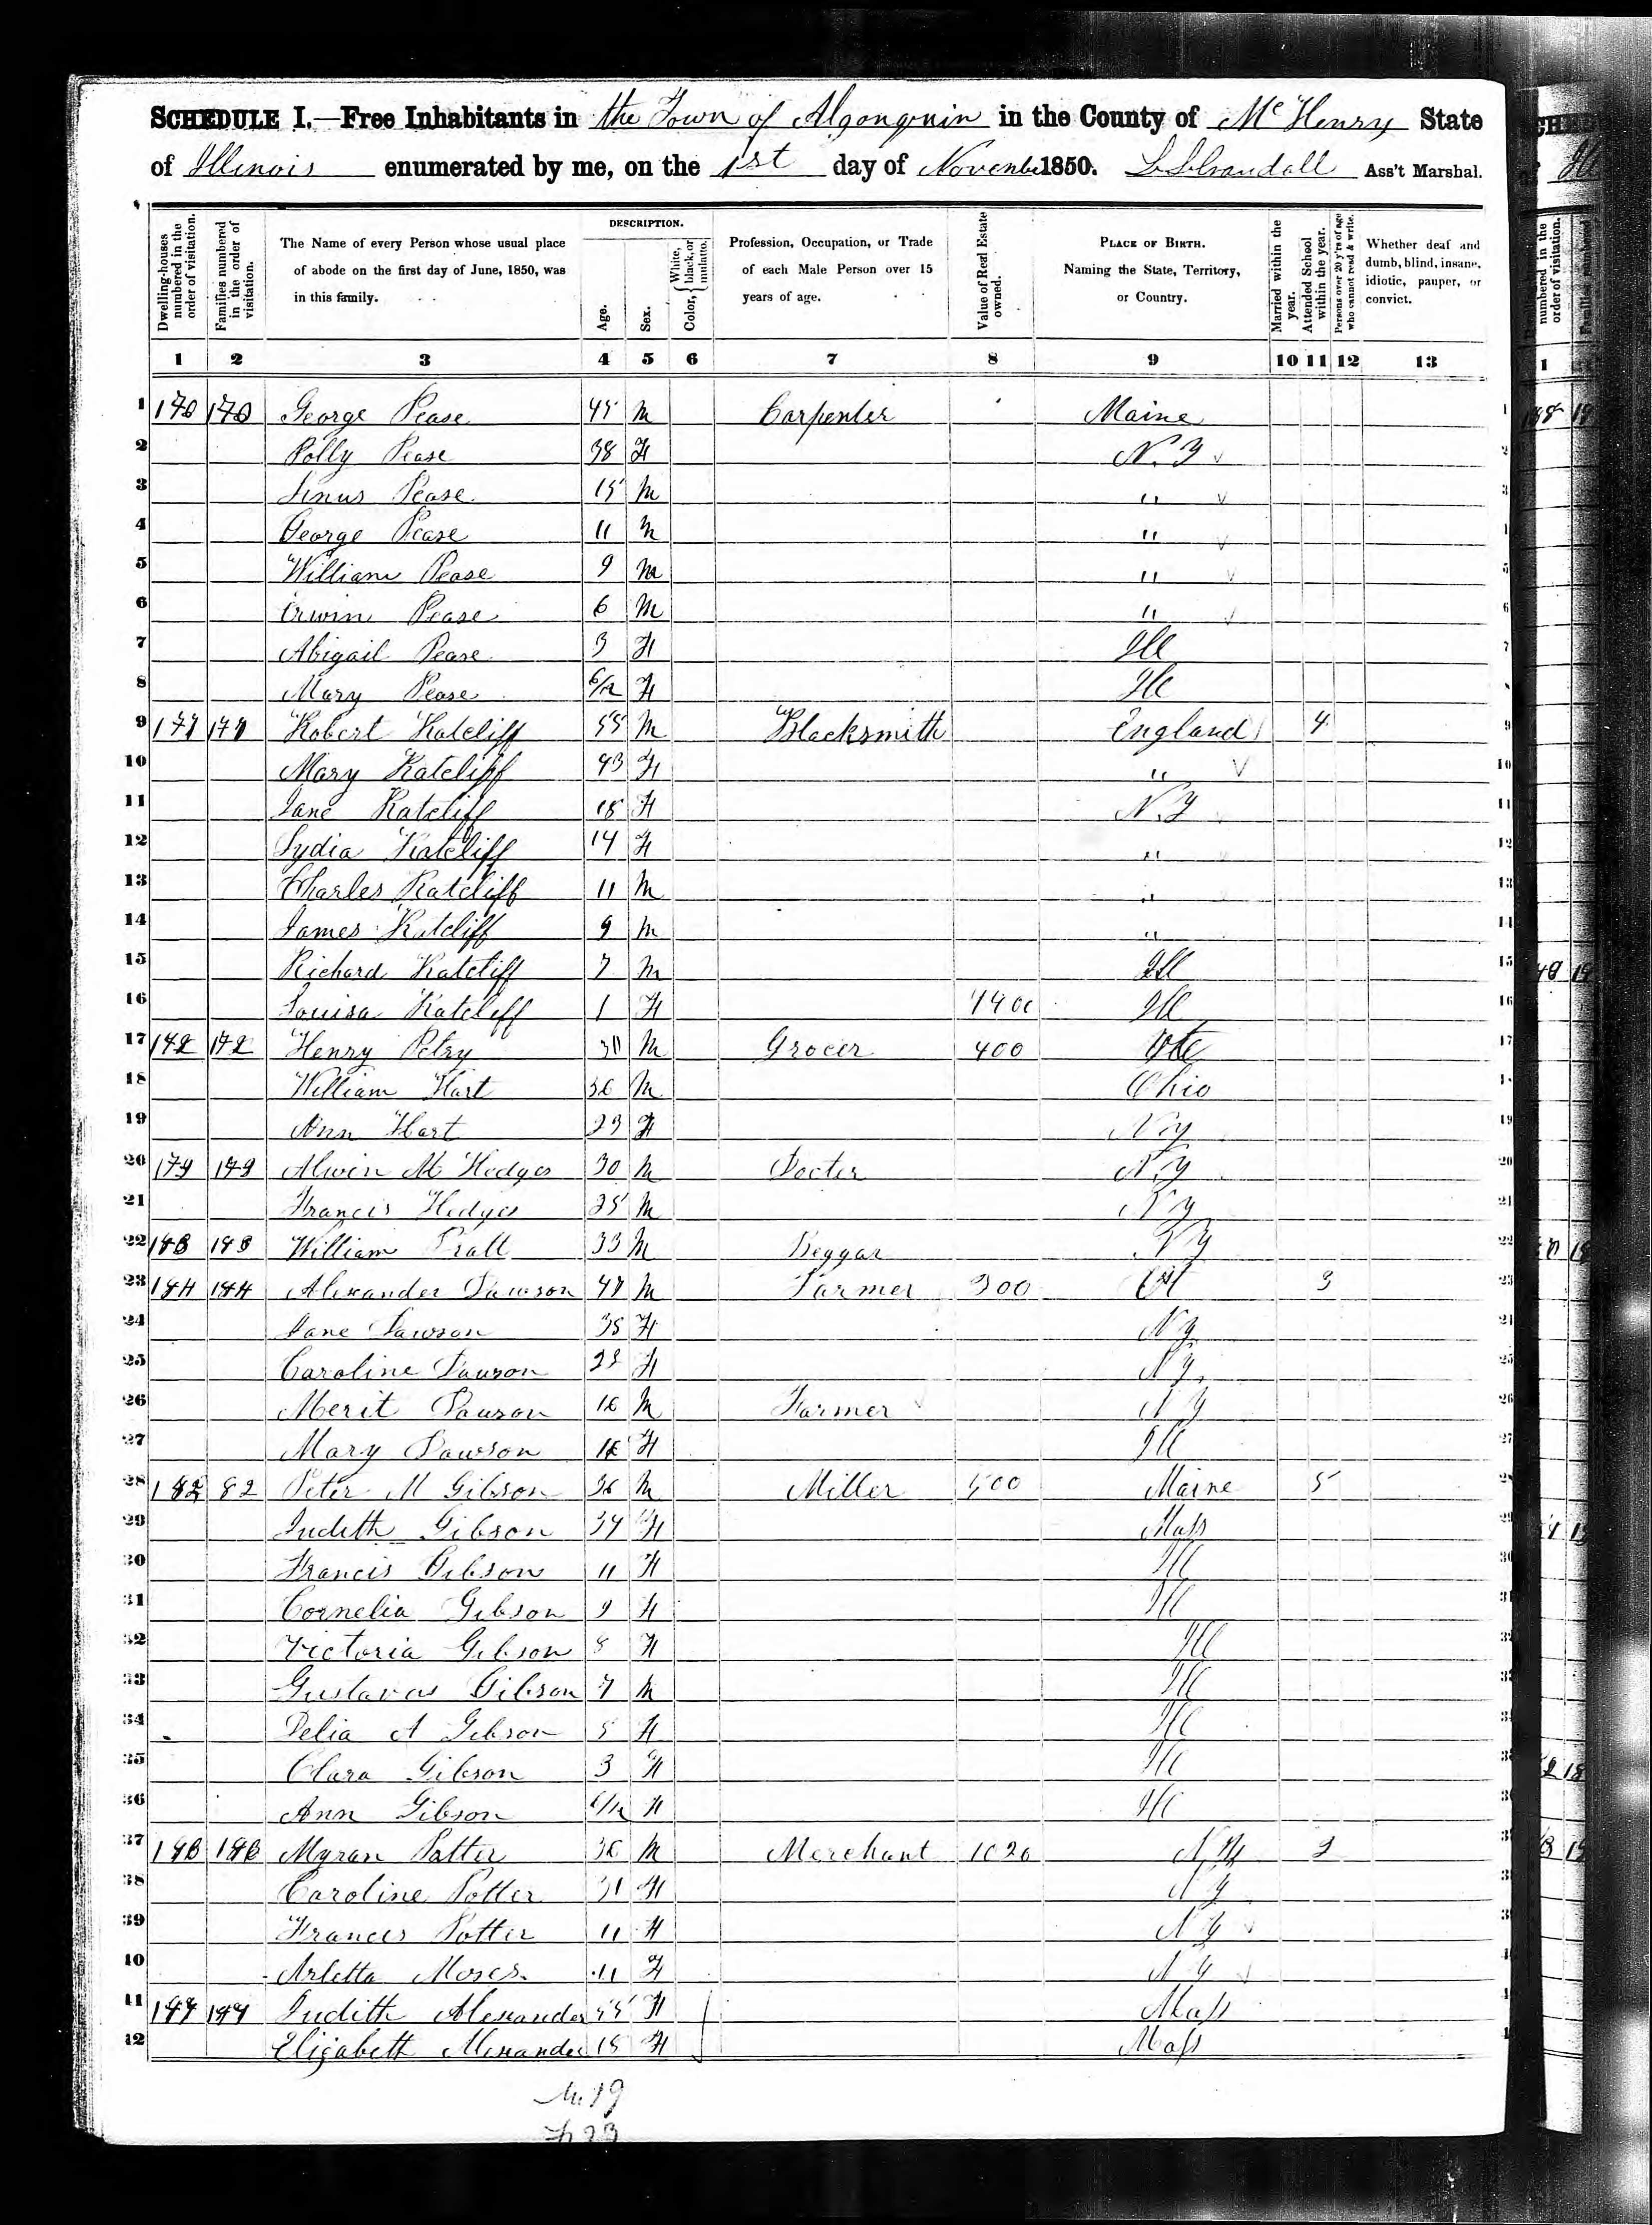 SCHEDULE I.—Free Inhabitants in the Town of Algonquin in the County of Mc Henry State
of Illinois enumerated by me, on the 1st day of Novembe 1850. Ass't Marshal.
Dwelling-houses numbered in the order of visitation.
Families numbered in the order of visitation.
The Name of every Person whose usual place of abode on the first day of June, 1850, was in this family.
DESCRIPTION.
Age.
Sex.
Color, { White, black, or mulatto.
Profession, Occupation, or Trade of each Male Person over 15 years of age.
Value of Real Estate owned.
PLACE OF BIRTH. Naming the State, Territory, or Country.
Married within the year.
Attended School within the year.
Persons over 20 y'rs of age who cannot read & write.
Whether deaf and dumb, blind, insane, idiotic, pauper, or convict.
1 2 3 4 5 6 7 8 9 10 11 12 13
1 170 170 George Pease 45 M Carpenter Maine
2 Polly Pease 38 F N.Y
3 Linus Pease 15 M "
4 George Pease 11 M "
5 William Pease 9 M "
6 Erwin Pease 6 M "
7 Abigail Pease 3 F Ill
8 Mary Pease 6/12 F Ill
9 171 171 Robert Ratcliff 55 M Blacksmith England 4
10 Mary Ratcliff 43 F "
11 Jane Ratcliff F N.Y
12 Lydia Ratcliff 14 F "
13 Charles Ratcliff 11 M "
14 James Ratcliff 9 M "
15 Richard Ratcliff 7 M Ill
16 Louisa Ratcliff 1 F Ill
17 172 172 Henry Petry M Grocer 400
18 William Hart 36 M Ohio
19 Ann Hart 23 F N.y
20 179 179 Alwin M Hedges 30 M Docter N.y
21 Francis Hedges 25 M N y
22 William Pratt 33 M Beggar N Y
23 Alexander Dawson M Farmer 300 3
24 Jane Dawson 35 F N y
25 Caroline Dawson F N Y
26 Merit Dawson 16 M Farmer N Y
27 Mary Dawson F Ill
28 182 82 Peter M Gibson 36 M Miller 500 Maine 5
29 Judith Gibson 34 F Mass
30 Francis Gibson 11 F Ill
31 Cornelia Gibson 9 F Ill
32 Victoria Gibson 8 F Ill
33 Gustavas Gibson 7 M Ill
34 Delia A Gibson 5 F Ill
35 Clara Gibson 3 F Ill
36 Ann Gibson 6/12 F Ill
37 Myran Potter 36 M Merchant 1020
38 Caroline Potter 31 F N Y
39 Frances Potter 11 F N Y
40 Arletta Moses 11 F N Y
41 Judith Alexander 55 F Mass
42 Elizabeth Alexander 18 F Mass
M. 19
F 23